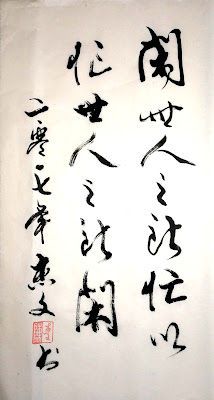 閑世人之所忙以
忙世人之所閑
二零一七年 文 书